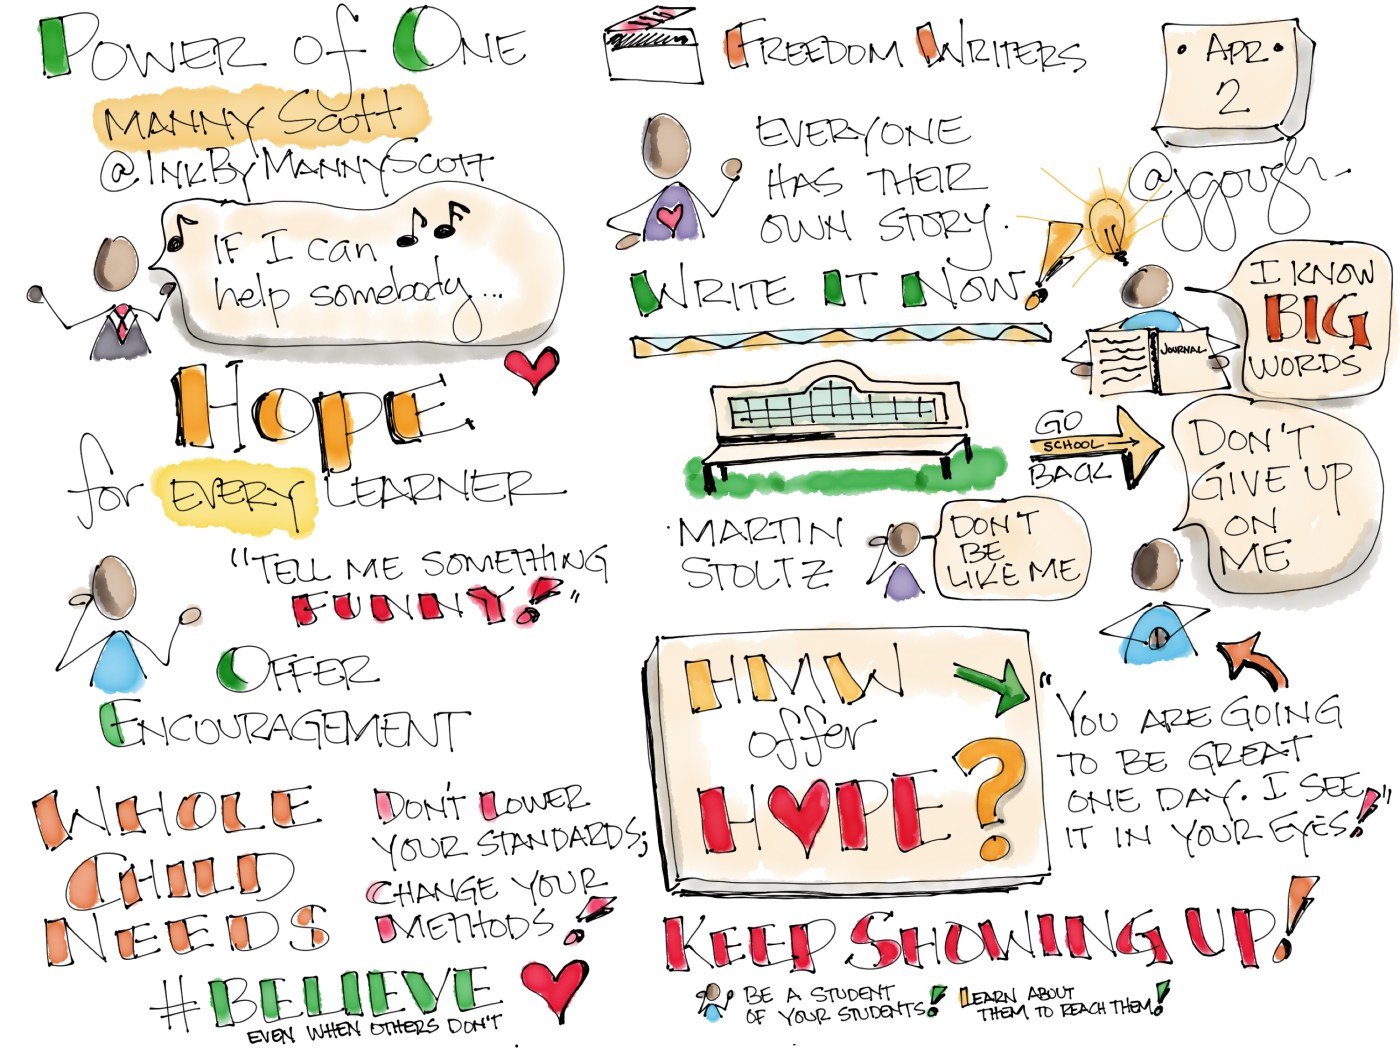 POWER of ONE
MANNY Scott
@INKBYMANNYSCOTT
IF I can
help somebody...
HOPE
for EVERY LEARNER
"TELL ME SOMETHING
FUNNY!"
OFFER
ENCOURAGEMENT
WHOLE
CHILD
NEEDS
DON'T LOWER
YOUR STANDARDS;
CHANGE YOUR
METHODS!
#BELIEVE
EVEN WHEN OTHERS DON'T
FREEDOM WRITERS
APR
2
@jgough
EVERYONE
HAS THEIR
OWN STORY.
WRITE IT NOW!
JOURNAL
I KNOW
BIG
WORDS
GO
SCHOOL
BACK
DON'T
GIVE UP
ON
ME
MARTIN
STOLTZ
DON'T
BE
LIKE ME
HMW
offer
HOPE?
"YOU ARE GOING
TO BE GREAT
ONE DAY. I SEE
IT IN YOUR EYES!"
KEEP SHOWING UP!
BE A STUDENT
OF YOUR STUDENTS!
LEARN ABOUT
THEM TO REACH THEM!